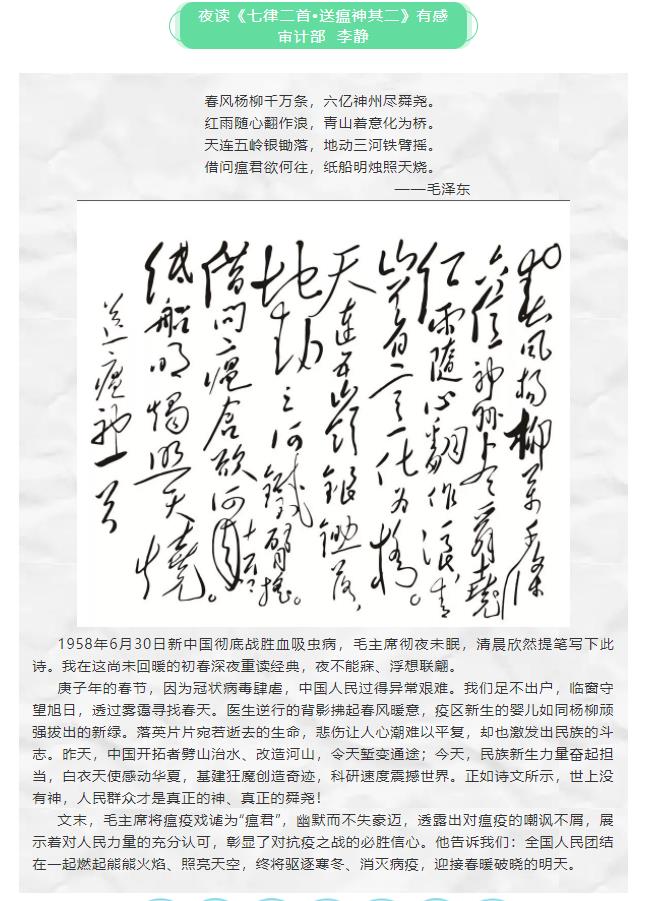 夜读《七律二首•送瘟神其二》有感
审计部 李静
春风杨柳千万条，六亿神州尽舜尧。
红雨随心翻作浪，青山着意化为桥。
天连五岭银锄落，地动三河铁臂摇。
借问瘟君欲何往，纸船明烛照天烧。
——毛泽东
春风杨柳万千條
六億神州尽舜堯
红雨随心翻作浪，青
山着意化为橋。
天连五岭银锄落，
地动三河鐵臂摇。
借问瘟君欲何
纸船明烛照天燒。
送瘟神一首
1958年6月30日新中国彻底战胜血吸虫病，毛主席彻夜未眠，清晨欣然提笔写下此
诗。我在这尚未回暖的初春深夜重读经典，夜不能寐、浮想联翩。
庚子年的春节，因为冠状病毒肆虐，中国人民过得异常艰难。我们足不出户，临窗守
望旭日，透过雾霭寻找春天。医生逆行的背影拂起春风暖意，疫区新生的婴儿如同杨柳顽
强拔出的新绿。落英片片宛若逝去的生命，悲伤让人心潮难以平复，却也激发出民族的斗
志。昨天，中国开拓者劈山治水、改造河山，令天堑变通途；今天，民族新生力量奋起担
当，白衣天使感动华夏，基建狂魔创造奇迹，科研速度震撼世界。正如诗文所示，世上没
有神，人民群众才是真正的神、真正的舜尧！
文末，毛主席将瘟疫戏谑为“瘟君”，幽默而不失豪迈，透露出对瘟疫的嘲讽不屑，展
示着对人民力量的充分认可，彰显了对抗疫之战的必胜信心。他告诉我们：全国人民团结
在一起燃起熊熊火焰、照亮天空，终将驱逐寒冬、消灭病疫，迎接春暖破晓的明天。